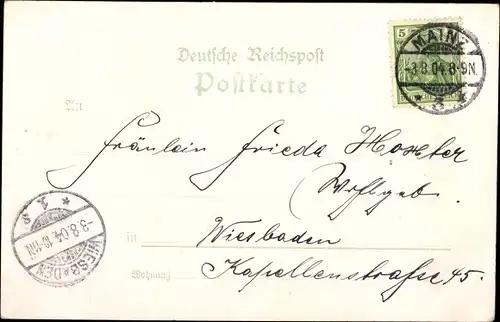 Deutsche Reichspost
Postkarte
5
MAINZ
-3.8.04.8-9N.
* 3 *
An
Fräulein Frieda
Wohlgeb.
in Wiesbaden
Wohnung Kapellenstrasse 45.
* 1. *
-3.8.04.10-11N.
WIESBADEN